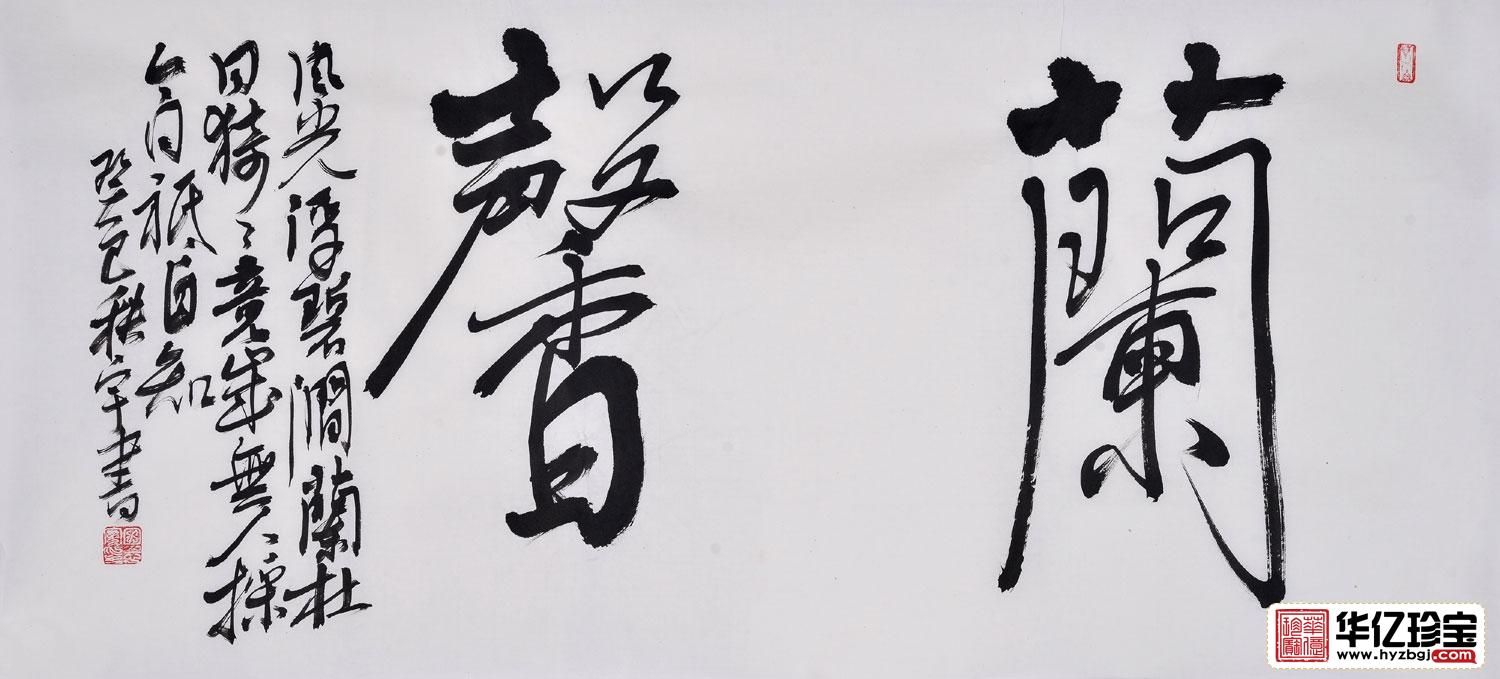 蘭馨
風光浮碧澗蘭杜
日猗々竟歲無人採
含香祗自知
癸巳秋宇書
华亿珍宝
www.hyzbgj.com